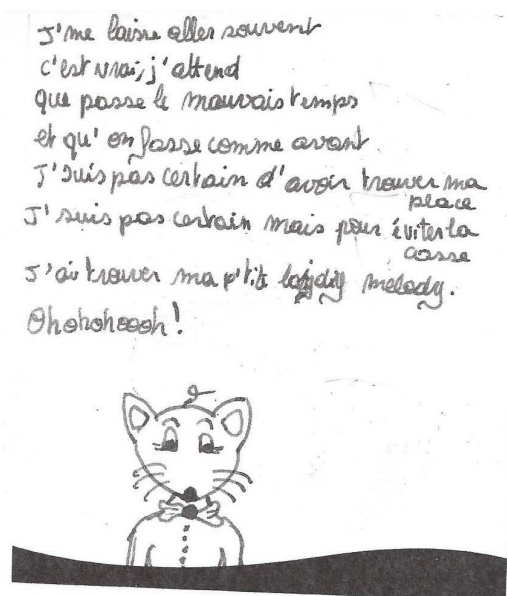 J'me laisse aller souvent
c'est vrai, j'attend
que passe le mauvais temps
et qu'on fasse comme avant.
J'suis pas certain d'avoir trouver ma
place
J'suis pas certain mais pour éviter la
casse
J'ai trouver ma p'tite melody.
Ohohohoooh!